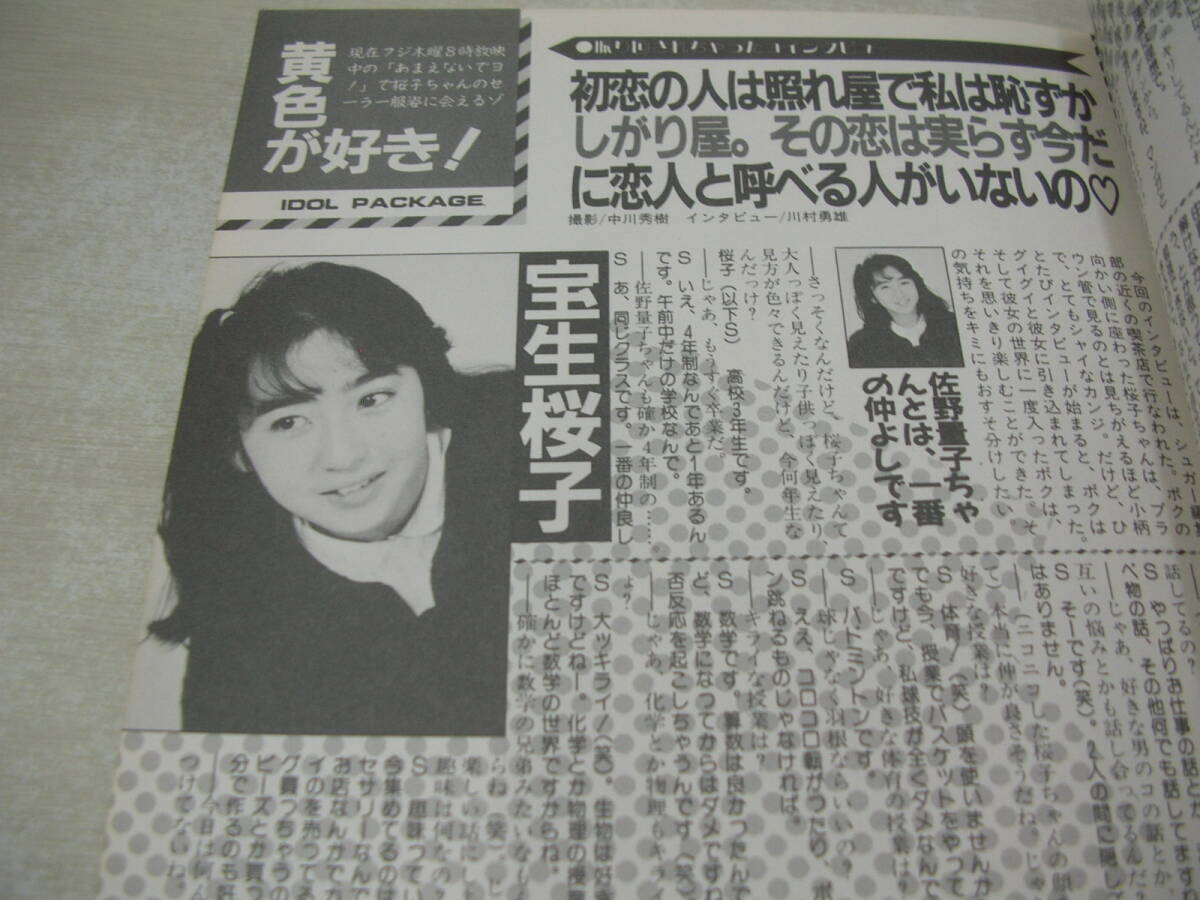 黄色
が好き！
現在フジ木曜8時放映
中の「あまえないでヨ
！」で桜子ちゃんのセ
ーラー服姿に会えるゾ
IDOL PACKAGE
初恋の人は照れ屋で私は恥ずか
しがり屋。その恋は実らず今だ
に恋人と呼べる人がいないの♡
撮影/中川秀樹　インタビュー/川村勇雄
宝生桜子
今回のインタビューは、シュガー編
部の近くの喫茶店で行なわれた。ボクの
向かい側に座わった桜子ちゃんは、ブラ
ウン管で見るのとは見ちがえるほど小柄
で、とてもシャイなカンジ。だけど、ひ
とたびインタビューが始まると、ボクは
グイグイと彼女に引き込まれてしまった。
そして彼女の世界に一度入ったボクは、
それを思いきり楽しむことができた。そ
の気持ちをキミにもおすそ分けしたい。
佐野量子ちゃ
んとは、一番
の仲よしです
――さっそくなんだけど、桜子ちゃんて
大人っぽく見えたり子供っぽく見えたり
見方が色々できるんだけど、今何年生な
んだっけ？
桜子（以下S）　高校3年生です。
――じゃあ、もうすぐ卒業だ。
S　いえ、4年制なんであと1年あるん
です。午前中だけの学校なんで。
――佐野量子ちゃんも確か4年制の……
S　あ、同じクラスです。一番の仲良し
話してるの？
S　やっぱりお仕事の話と
べ物の話、その他何でも話してますね
――じゃあ、好きな男のコの話とか
互いの悩みとかも話し合ってるんだ？
S　そーです（笑）。2人の間に隠し
はありません。
――（ニコニコした桜子ちゃんの顔
て）本当に仲が良さそうだね。じゃ
好きな授業は？
S　体育！（笑）頭を使いませんか
でも今、授業でバスケットをやって
ですけど、私球技が全くダメなんで
――じゃあ、好きな体育の授業は？
S　バトミントンです。
――球じゃなく羽根ならいいの？
S　ええ、コロコロ転がったり、ポ
ン跳ねるものじゃなければ。
――キライな授業は？
S　数学です。算数は良かったんで
ど、数学になってからはダメですね
否反応を起こしちゃうんです（笑）
――じゃあ、化学とか物理もキライ
ょ？
S　大ッキライ！（笑）。生物は好き
ですけどねー。化学とか物理の授業
ほとんど数学の世界ですからね。
――確かに数学の兄弟みたいなもん
らね（笑）。じ
楽しい話にし
趣味は何なの？
S　趣味ってい
今集めてるのは
セサリーなんで
お店なんかでか
イのを売ってる
グ買っちゃうの
ビーズとか買つ
分で作るのも好
――今日は何ん
つけてないね。